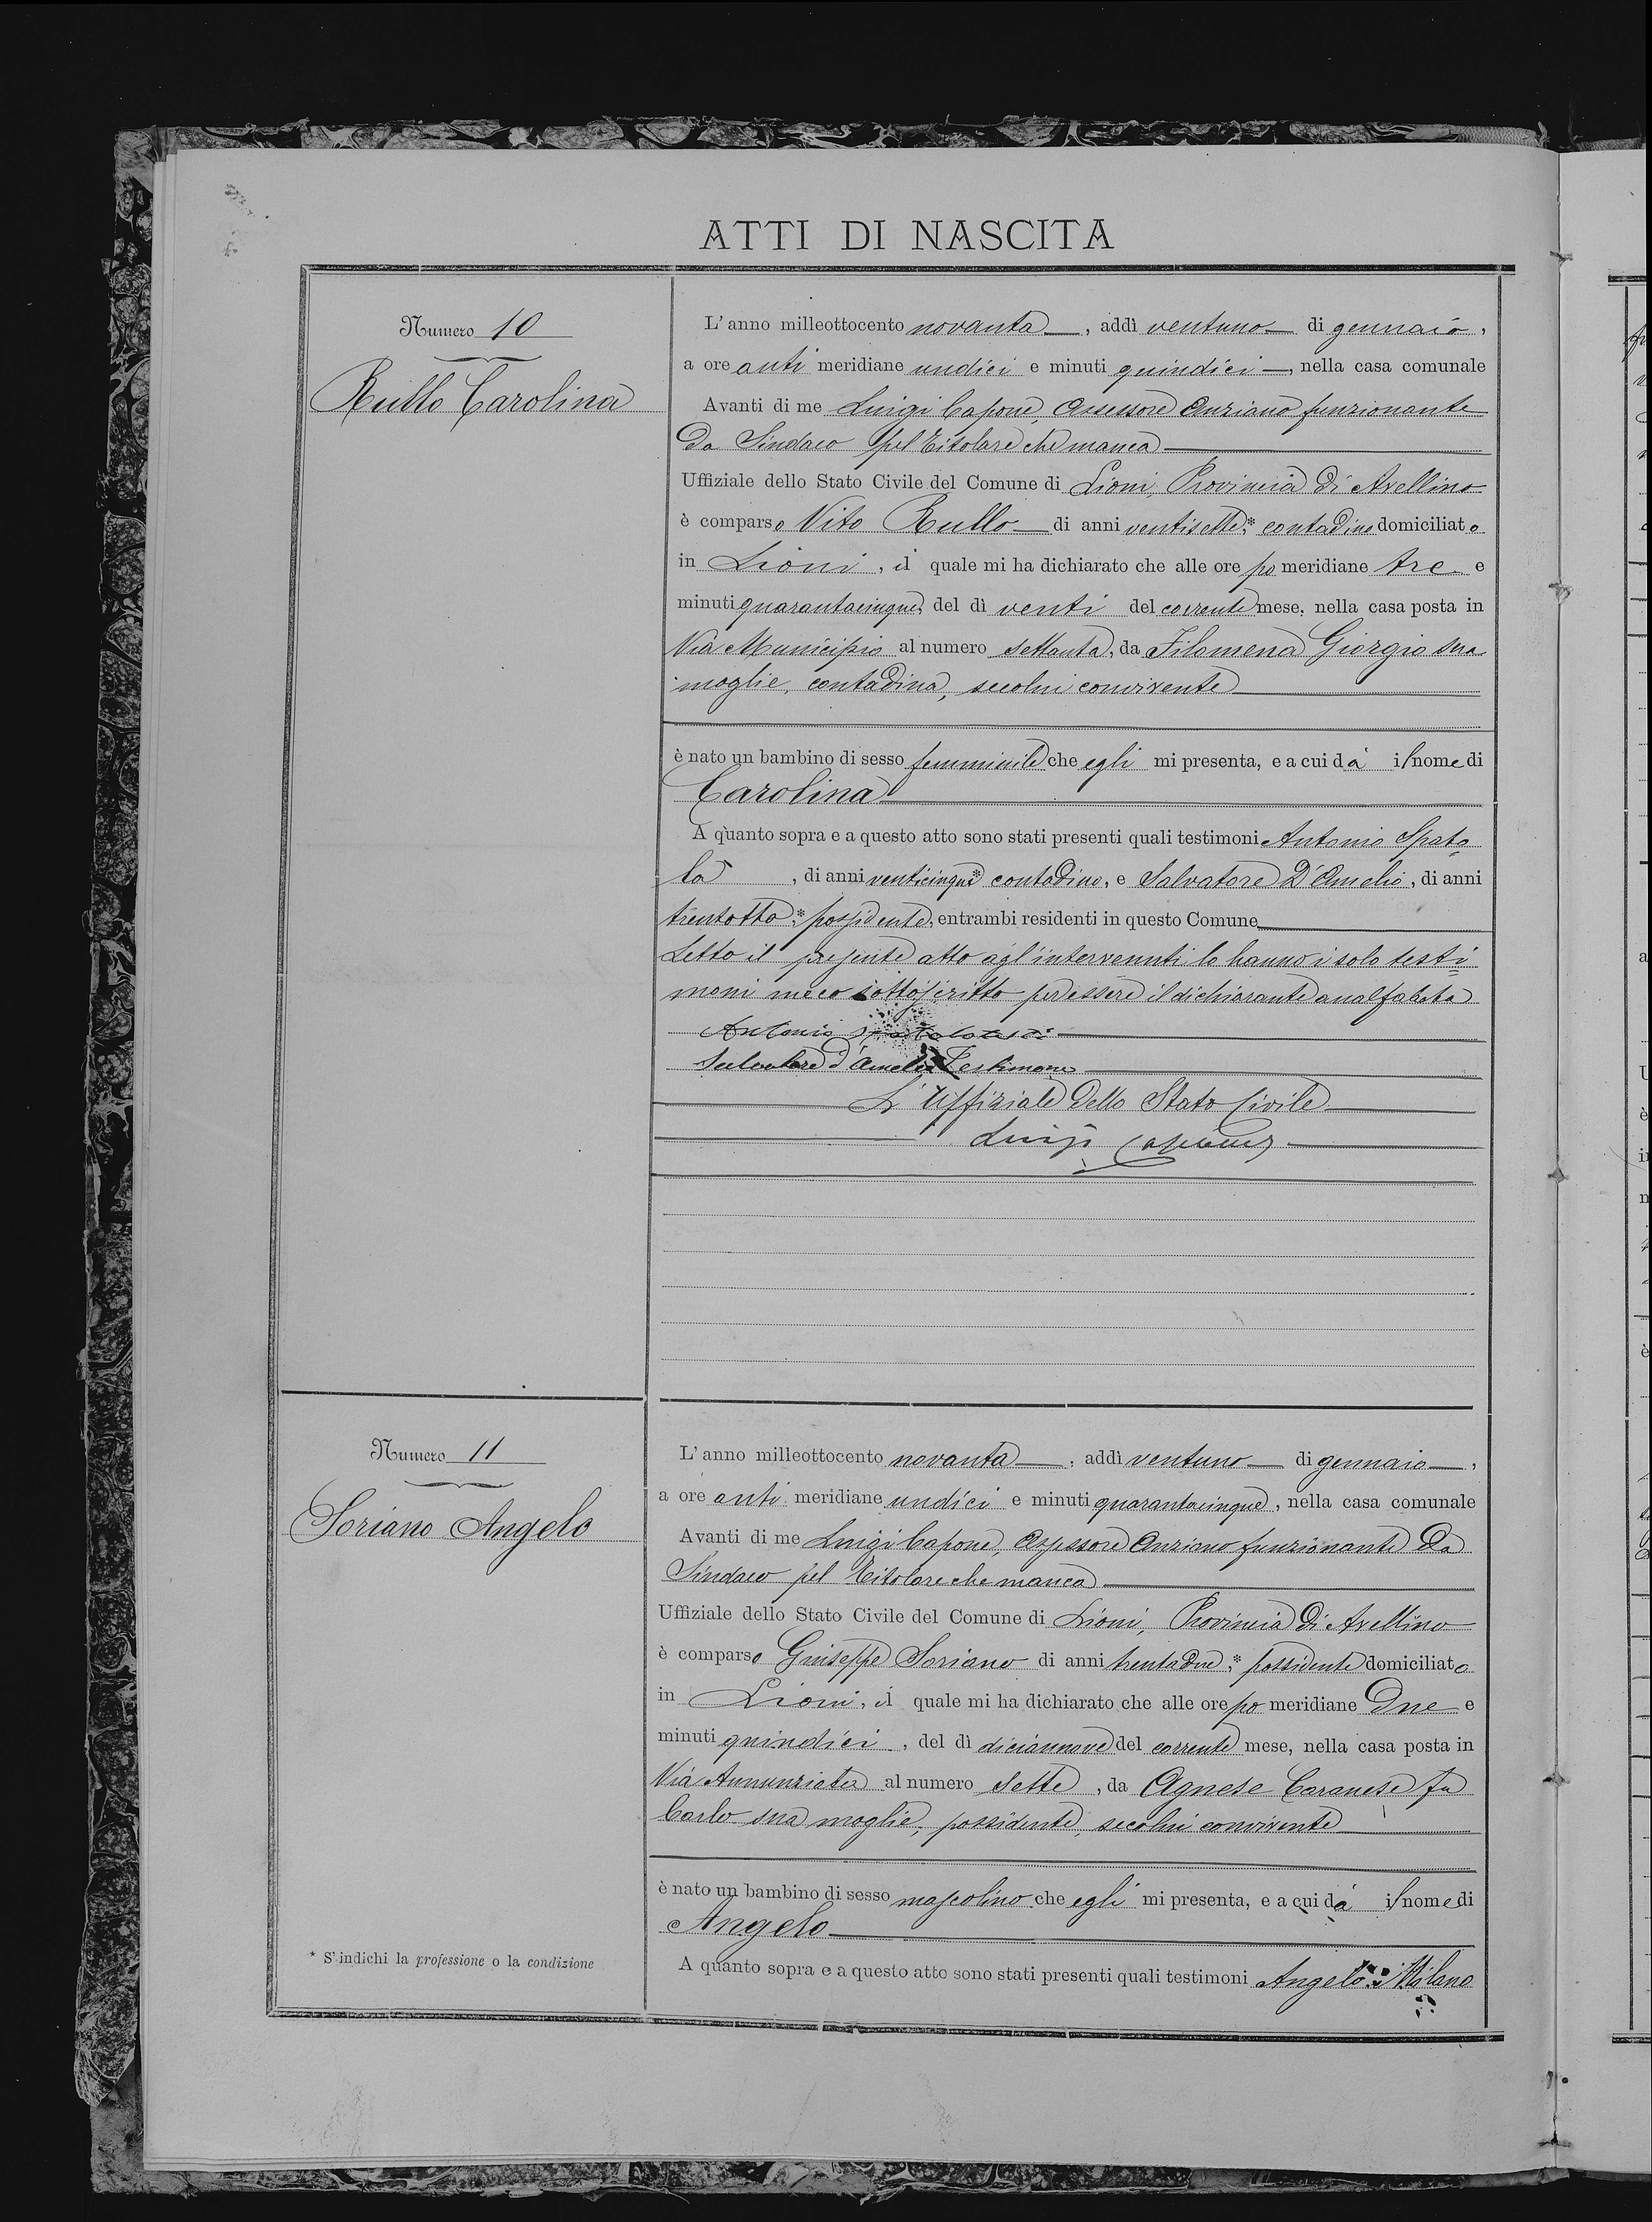 ATTI DI NASCITA
Numero 10
Rullo Carolina
L'anno milleottocento novanta, addì ventuno di gennaio,
a ore anti meridiane undici e minuti quindici, nella casa comunale
Avanti di me Luigi Capone, Assessore Anziano funzionante
da Sindaco pel Titolare che manca
Uffiziale dello Stato Civile del Comune di Lioni, Provincia di Avellino
è comparso Vito Rullo di anni ventisette,* contadino domiciliato
in Lioni, il quale mi ha dichiarato che alle ore po meridiane tre e
minuti quarantacinque, del dì venti del corrente mese, nella casa posta in
Via Municipio al numero settanta, da Filomena Giorgio sua
moglie, contadina, secolui convivente
è nato un bambino di sesso femminile che egli mi presenta, e a cui dà il nome di
Carolina
A quanto sopra e a questo atto sono stati presenti quali testimoni Antonio Spato
la, di anni venticinque* contadino, e Salvatore D'Amelio, di anni
trentotto,* possidente, entrambi residenti in questo Comune
Letto il presente atto agl'intervenuti lo hanno i solo testi
moni meco sottoscritto per essere il dichiarante analfabeta
Antonio
Salvatore d'Amelio Testimone
L'Uffiziale dello Stato Civile
Luigi Capone
Numero 11
Soriano Angelo
L'anno milleottocento novanta, addì ventuno di gennaio,
a ore anti meridiane undici e minuti quarantacinque, nella casa comunale
Avanti di me Luigi Capone, Assessore Anziano funzionante da
Sindaco pel Titolare che manca
Uffiziale dello Stato Civile del Comune di Lioni, Provincia di Avellino
è comparso Giuseppe Soriano di anni trentadue,* possidente domiciliato
in Lioni, il quale mi ha dichiarato che alle ore po meridiane due e
minuti quindici, del dì diciannove del corrente mese, nella casa posta in
Via Annunziata al numero sette, da Agnese Caranese fu
Carlo sua moglie, possidente, secolui convivente
è nato un bambino di sesso mascolino che egli mi presenta, e a cui dà il nome di
Angelo
A quanto sopra e a questo atto sono stati presenti quali testimoni Angelo Milano
* S'indichi la professione o la condizione